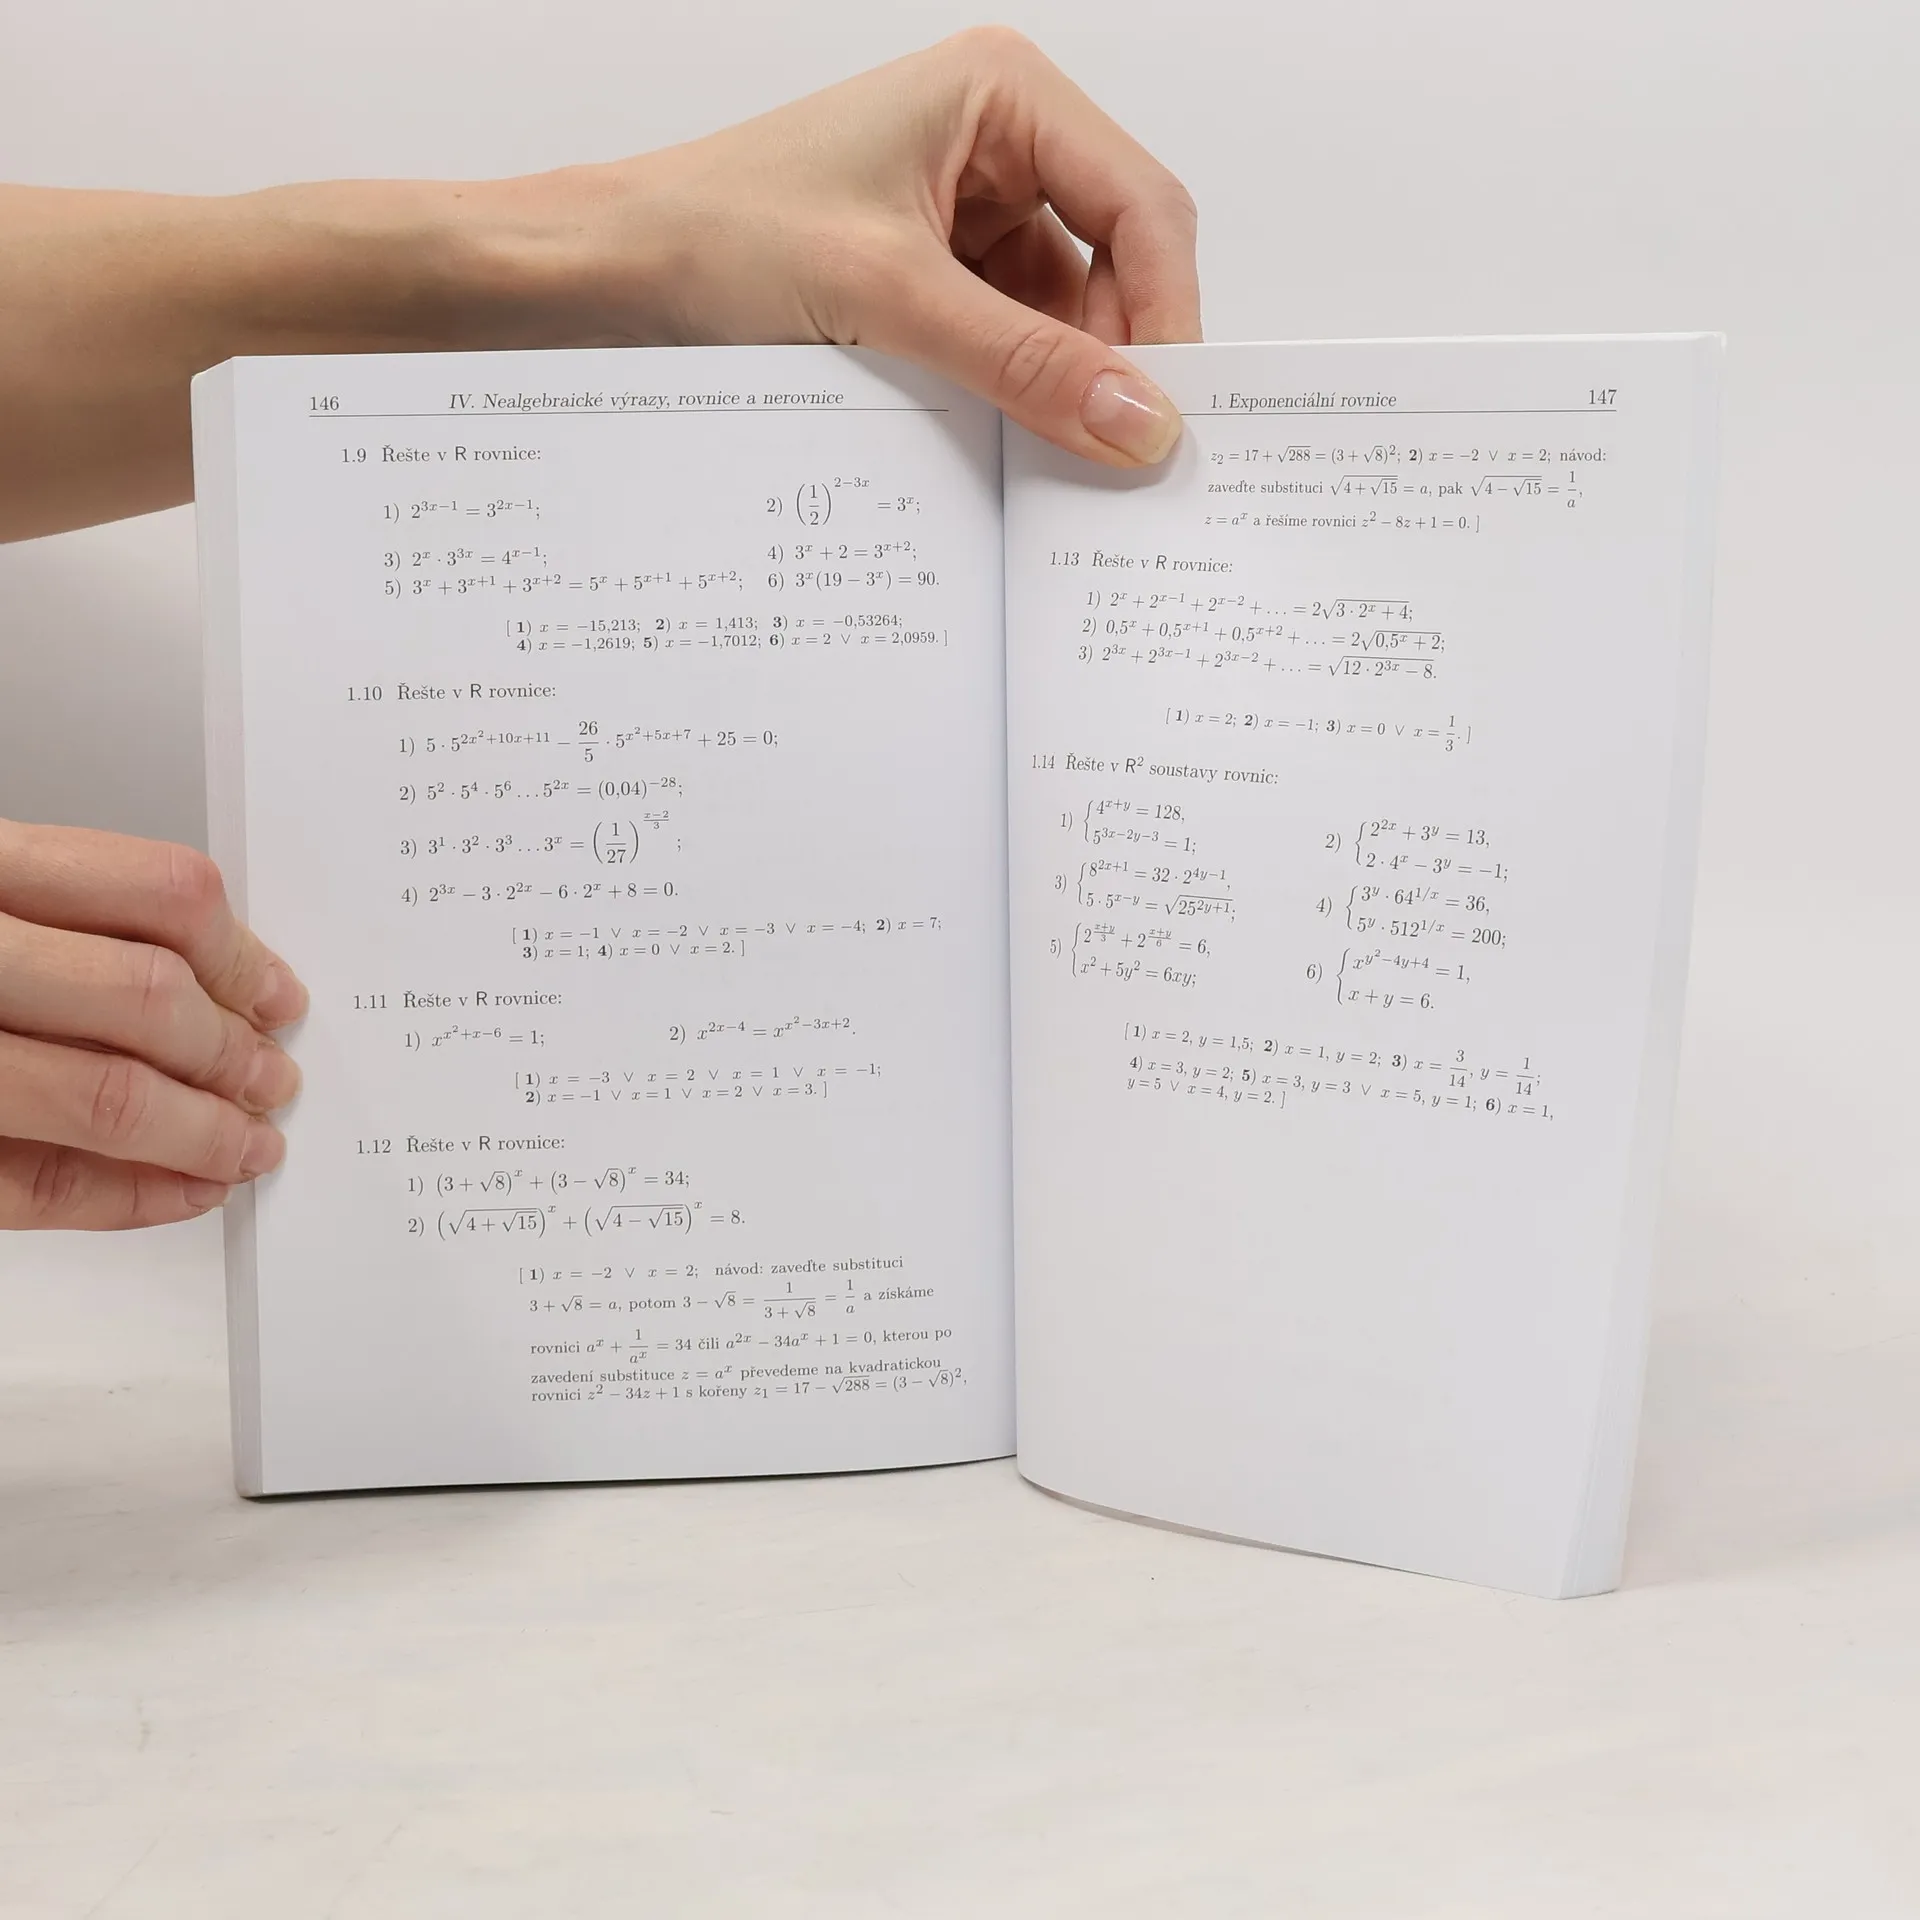 146 IV. Nealgebraické výrazy, rovnice a nerovnice
1.9 Řešte v R rovnice:
1) 2^{3x−1} = 3^{2x−1}; 2) (1/2)^{2−3x} = 3^x;
3) 2^x · 3^{3x} = 4^{x−1}; 4) 3^x + 2 = 3^{x+2};
5) 3^x + 3^{x+1} + 3^{x+2} = 5^x + 5^{x+1} + 5^{x+2}; 6) 3^x(19 − 3^x) = 90.
[ 1) x = −15,213; 2) x = 1,413; 3) x = −0,53264;
4) x = −1,2619; 5) x = −1,7012; 6) x = 2 ∨ x = 2,0959. ]
1.10 Řešte v R rovnice:
1) 5 · 5^{2x²+10x+11} − 26/5 · 5^{x²+5x+7} + 25 = 0;
2) 5² · 5⁴ · 5⁶ ... 5^{2x} = (0,04)^{−28};
3) 3¹ · 3² · 3³ ... 3^x = (1/27)^{(x−2)/3};
4) 2^{3x} − 3 · 2^{2x} − 6 · 2^x + 8 = 0.
[ 1) x = −1 ∨ x = −2 ∨ x = −3 ∨ x = −4; 2) x = 7;
3) x = 1; 4) x = 0 ∨ x = 2. ]
1.11 Řešte v R rovnice:
1) x^{x²+x−6} = 1; 2) x^{2x−4} = x^{x²−3x+2}.
[ 1) x = −3 ∨ x = 2 ∨ x = 1 ∨ x = −1;
2) x = −1 ∨ x = 1 ∨ x = 2 ∨ x = 3. ]
1.12 Řešte v R rovnice:
1) (3 + √8)^x + (3 − √8)^x = 34;
2) (√(4 + √15))^x + (√(4 − √15))^x = 8.
[ 1) x = −2 ∨ x = 2; návod: zaveďte substituci
3 + √8 = a, potom 3 − √8 = 1/(3 + √8) = 1/a a získáme
rovnici a^x + 1/a^x = 34 čili a^{2x} − 34a^x + 1 = 0, kterou po
zavedení substituce z = a^x převedeme na kvadratickou
rovnici z² − 34z + 1 s kořeny z₁ = 17 − √288 = (3 − √8)²,
1. Exponenciální rovnice 147
z₂ = 17 + √288 = (3 + √8)²; 2) x = −2 ∨ x = 2; návod:
zaveďte substituci √(4 + √15) = a, pak √(4 − √15) = 1/a,
z = a^x a řešíme rovnici z² − 8z + 1 = 0. ]
1.13 Řešte v R rovnice:
1) 2^x + 2^{x−1} + 2^{x−2} + ... = 2√(3 · 2^x + 4);
2) 0,5^x + 0,5^{x+1} + 0,5^{x+2} + ... = 2√(0,5^x + 2);
3) 2^{3x} + 2^{3x−1} + 2^{3x−2} + ... = √(12 · 2^{3x} − 8).
[ 1) x = 2; 2) x = −1; 3) x = 0 ∨ x = 1/3. ]
1.14 Řešte v R² soustavy rovnic:
1) { 4^{x+y} = 128,
5^{3x−2y−3} = 1;
2) { 2^{2x} + 3^y = 13,
2 · 4^x − 3^y = −1;
3) { 8^{2x+1} = 32 · 2^{4y−1},
5 · 5^{x−y} = √(25^{2y+1});
4) { 3^y · 64^{1/x} = 36,
5^y · 512^{1/x} = 200;
5) { 2^{(x+y)/3} + 2^{(x+y)/6} = 6,
x² + 5y² = 6xy;
6) { x^{y²−4y+4} = 1,
x + y = 6.
[ 1) x = 2, y = 1,5; 2) x = 1, y = 2; 3) x = 3/14, y = 1/14;
4) x = 3, y = 2; 5) x = 3, y = 3 ∨ x = 5, y = 1; 6) x = 1,
y = 5 ∨ x = 4, y = 2. ]